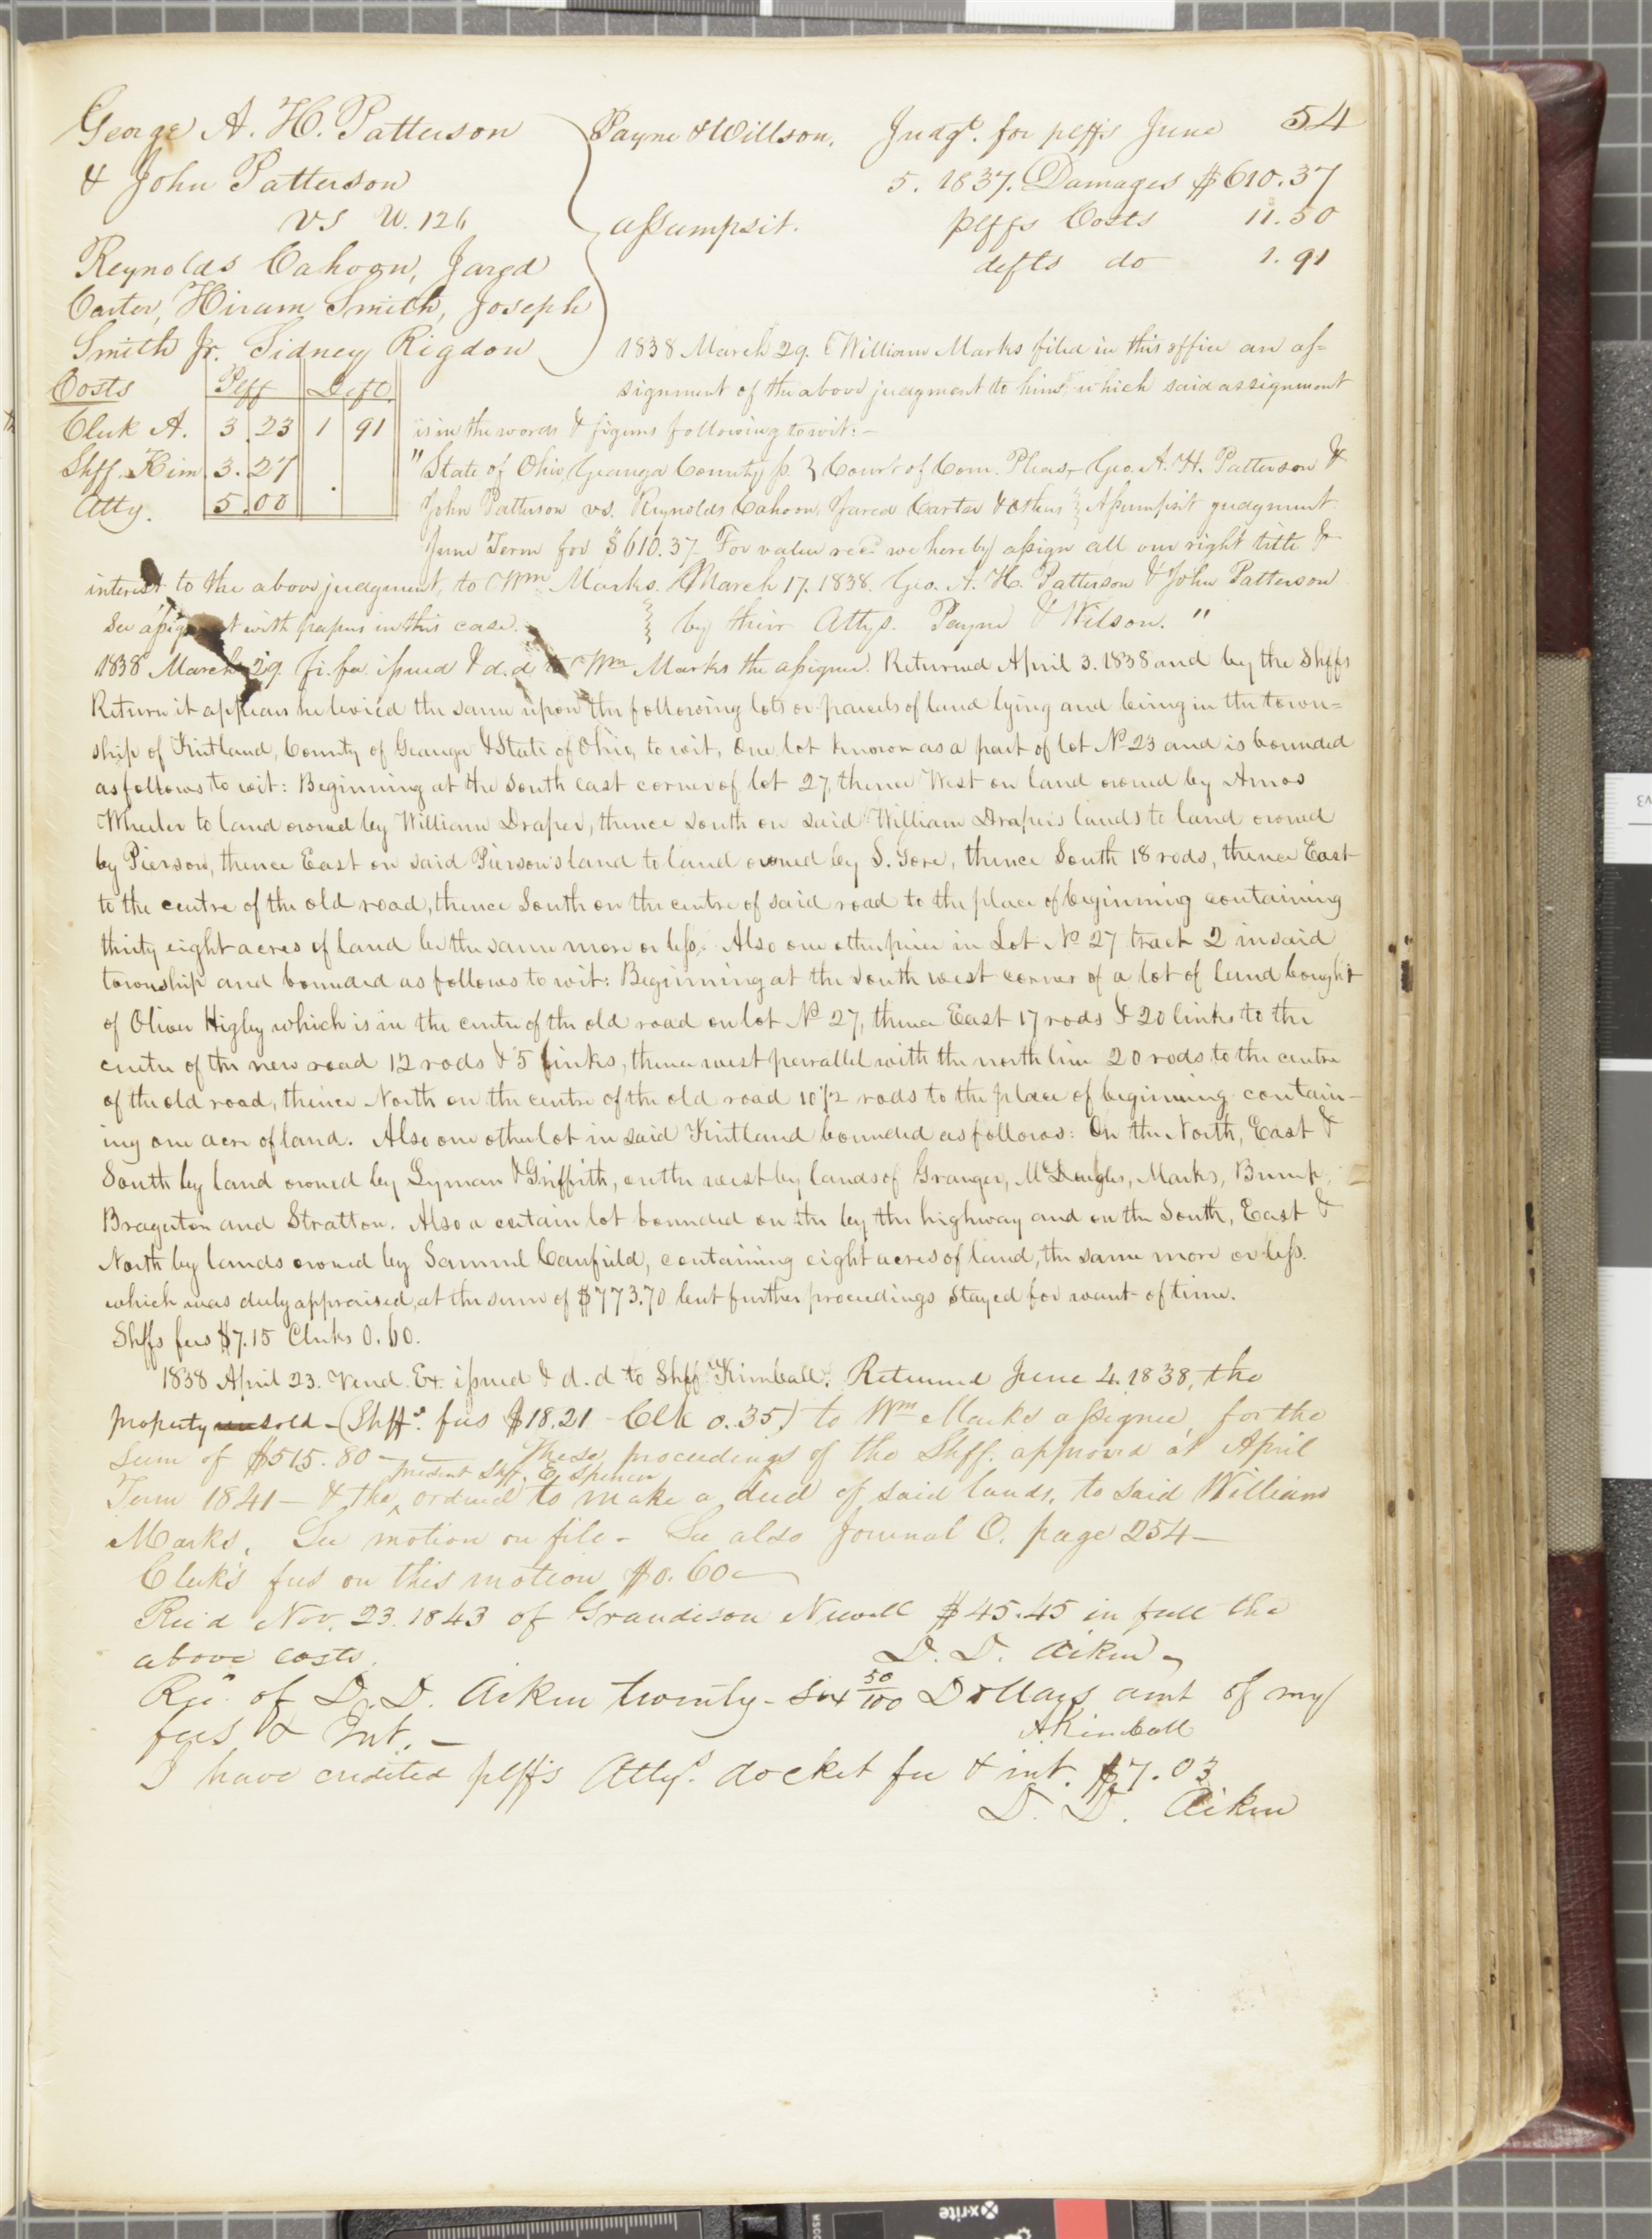 54
George A. H. Patterson
& John Patterson
vs U. 126
Reynolds Cahoon, Jared
Carter, Hiram Smith, Joseph
Smith Jr. Sidney Rigdon
Payne & Willson.
assumpsit.
Judgt. for plffs June
5. 1837. Damages $610.37
plffs Costs 11.50
defts do 1.91
Costs Plff Deft.
Clerk A. 3.23 1 91
Shff. Kim 3.27
Atty. 5.00
1838 March 29. William Marks filed in this office an as=
signment of the above judgment to him, which said assignment
is in the words & figures following to wit:—
"State of Ohio, Geauga County ss. } Court of Com. Pleas, Geo. A. H. Patterson &
John Patterson vs. Reynolds Cahoon, Jared Carter & others } Assumpsit judgment
June Term for $610.37. For value recd. we hereby assign all our right title &
interest to the above judgment, to Wm. Marks. March 17. 1838. Geo. A. H. Patterson & John Patterson
See assignment with papers in this case. } by their Attys. Payne & Wilson."
1838 March 29. fi. fa. issued & d.d to Wm Marks the assignee. Returned April 3. 1838 and by the Shffs
Return it appears he levied the same upon the following lots or parcels of land lying and being in the town=
ship of Kirtland, County of Geauga & State of Ohio, to wit, One lot known as a part of lot No 23 and is bounded
as follows to wit: Beginning at the South east corner of lot 27, thence West on land owned by Amos
Wheeler to land owned by William Draper, thence south on said William Drapers lands to land owned
by Pierson, thence East on said Pierson's land to land owned by S. Gore, thence South 18 rods, thence East
to the centre of the old road, thence South on the centre of said road to the place of beginning containing
thirty eight acres of land be the same more or less. Also one other piece in Lot No 27 tract 2 in said
township and bounded as follows to wit: Beginning at the south west corner of a lot of land bought
of Oliver Higley which is in the centre of the old road on lot No 27, thence East 17 rods & 20 links to the
centre of the new road 12 rods & 5 links, thence west perrallel with the north line 20 rods to the centre
of the old road, thence North on the centre of the old road 10 1/2 rods to the place of beginning contain-
ing one acre of land. Also one other lot in said Kirtland bounded as follows: On the North, East &
South by land owned by Lyman & Griffith, on the west by lands of Granger, McDougles, Marks, Bump,
Braguton and Stratton. Also a certain lot bounded on the by the highway and on the South, East &
North by lands owned by Samuel Canfield, containing eight acres of land, the same more or less.
which was duly appraised, at the sum of $773.70 but further proceedings stayed for want of time.
Shffs fees $7.15 Clerks 0.60.
1838 April 23. Vend. Ex. issued & d.d to Shff Kimball. Returned June 4. 1838, the
property unsold - (Shffs. fees $18.21 Clk 0.35) to Wm Marks assignee, for the
Sum of $515.80 — These proceedings of the Shff. approved at April
present Shff. E. Spencer
Term 1841 — & the ^ ordered to make a deed of said lands, to said William
Marks. See motion on file - See also Journal O. page 254 —
Clerk's fees on this motion $0.60—
Rec'd Nov. 23. 1843 of Grandison Newell $45.45 in full the
above costs. D. D. Aiken
Rec. of D. D. Aiken twenty-six 50/100 Dollars amt of my
fees & Int. — A Kimball
I have credited plffs Attys. docket fee & int. $7.03
D. D. Aiken
x-rite